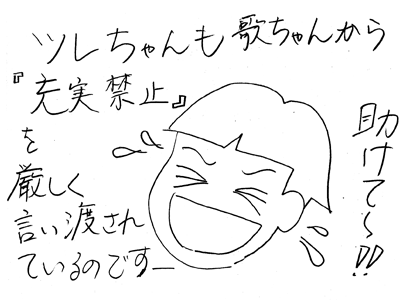 ツレちゃんも歌ちゃんから
『充実禁止』
を
厳しく
言い渡され
ているのですー
助けて〜!!